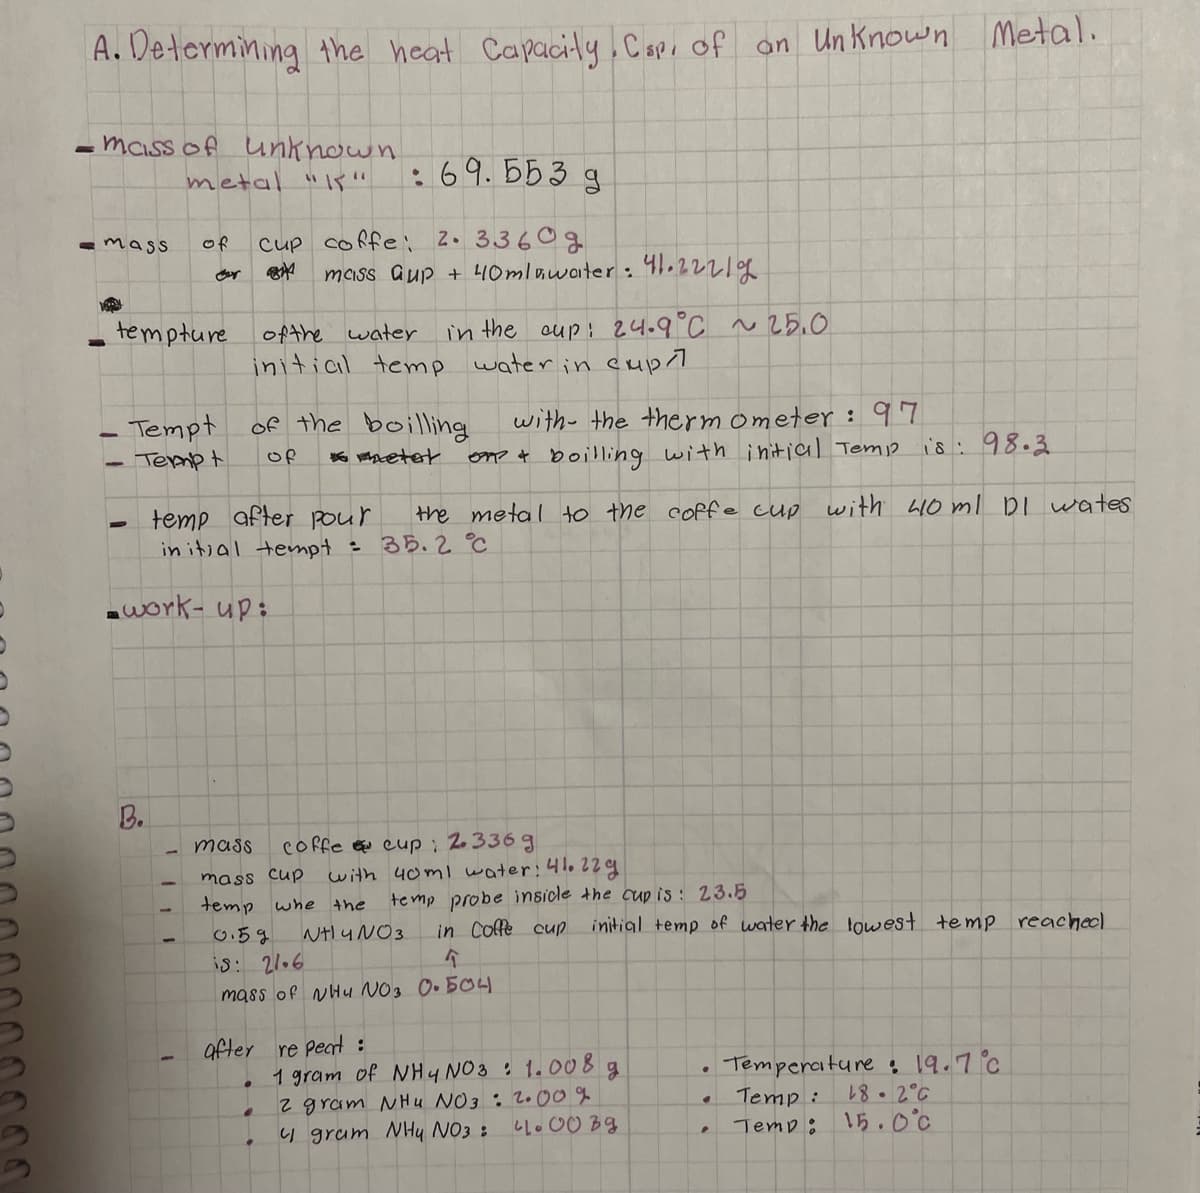 A. Determining the heat Capacity, Csp, of an Unknown Metal.
- mass of unknown
metal "K" : 69.553 g
- mass of cup coffe: 2.3360g
or mass cup + 40ml water: 41.2221g
- tempture ofthe water in the cup: 24.9°C ~ 25.0
initial temp water in cup
- Tempt of the boilling with the thermometer: 97
- Tempt of + boilling with initial Temp is: 98.3
- temp after pour the metal to the coffe cup with 40 ml DI wates
initial tempt = 35.2 °C
- work-up:
B.
- mass coffe cup: 2.336g
- mass cup with 40ml water: 41.22g
- temp whe the temp probe inside the cup is: 23.5
- 0.5g NH4NO3 in Coffe cup initial temp of water the lowest temp reached
is: 21.6 ↑
mass of NH4 NO3 0.504
- after repeat:
• 1 gram of NH4NO3 : 1.008 g • Temperature: 19.7°C
• 2 gram NH4 NO3 : 2.00 g • Temp: 18.2°C
• 4 gram NH4 NO3: 4.003g • Temp: 15.0°C